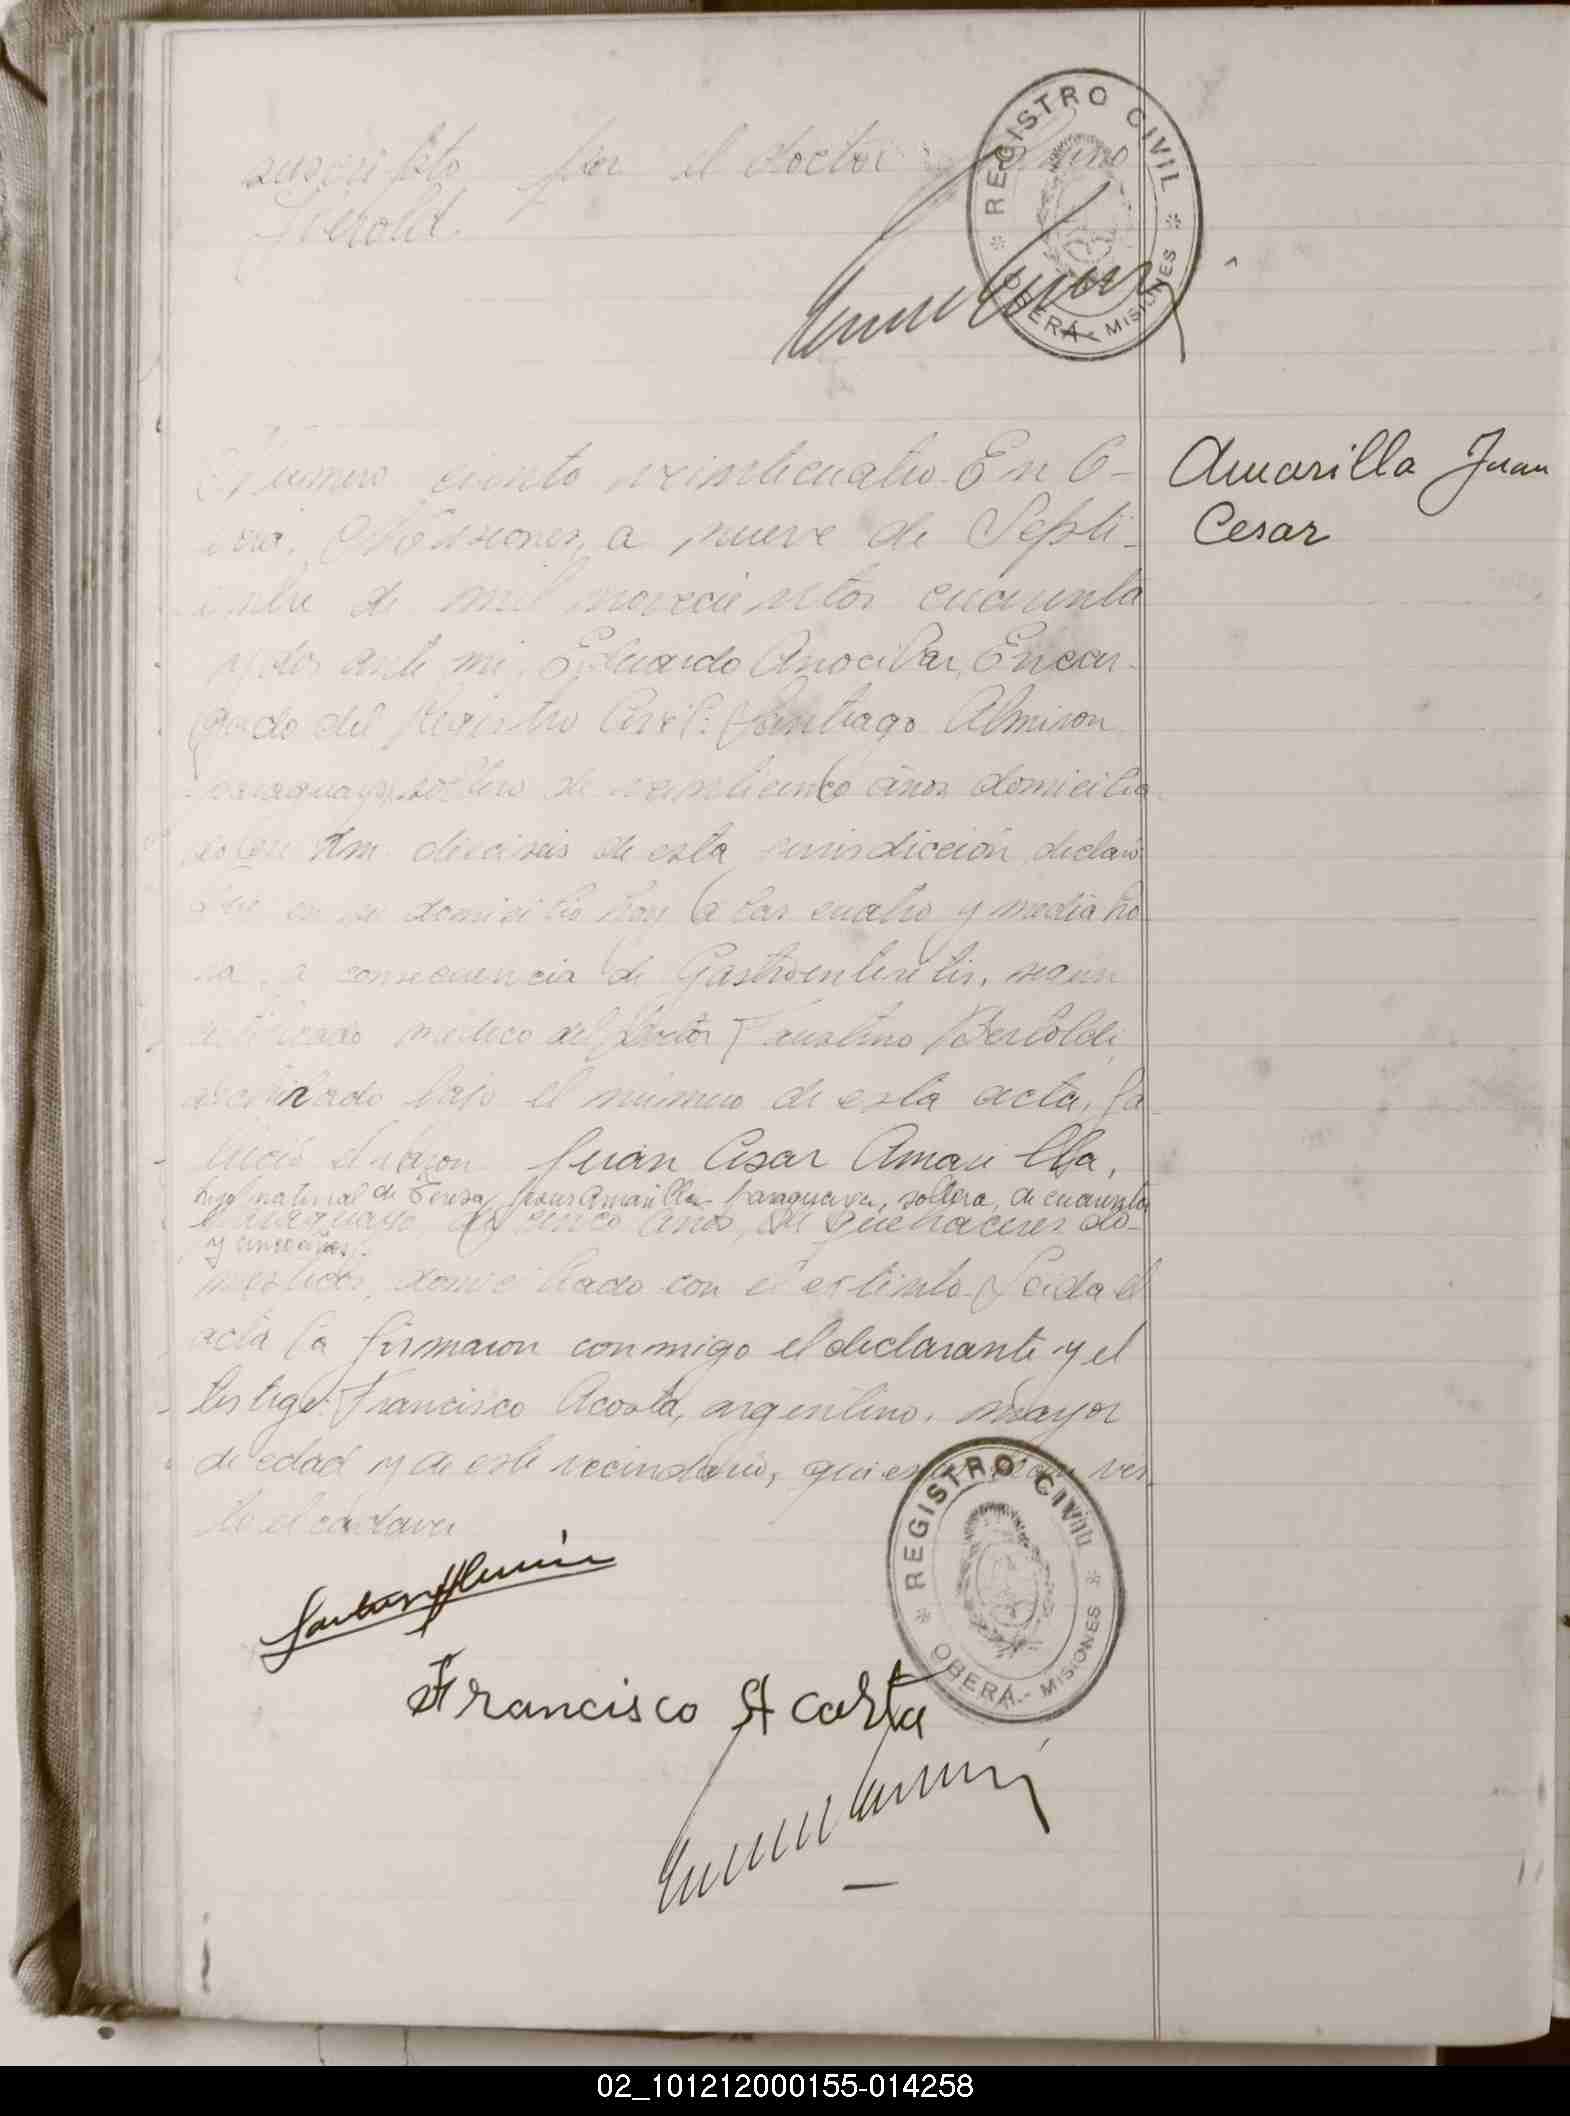 suscripto por el doctor
REGISTRO CIVIL
OBERÁ - MISIONES
Número ciento veinticuatro. En O-
berá, Misiones, a nueve de Septi-
embre de mil novecientos cuarenta
y dos ante mi, Eduardo Anocibar, Encar-
gado del Registro Civil: Santiago Almiron
paraguayo, soltero de veinticinco años domicilia
do en Km. dieciseis de esta jurisdicción, declaró:
Que en su domicilio hoy a las cuatro y media ho
ra, a consecuencia de Gastroenteritis, según
certificado médico del Doctor Faustino Bertoldi,
archivado bajo el número de esta acta, fa
lleció el varon Juan Cesar Amarilla,
hijo natural de Teresa Jesus Amarilla paraguaya, soltera, de cuarenta
y cinco años,
paraguayo de cinco años, de quehaceres do-
mesticos, domiciliado con el extinto. Leida el
acta la firmaron conmigo el declarante y el
testigo: Francisco Acosta, argentino, mayor
de edad y de este vecindario, quienes ven
el cádaver
Amarilla Juan
Cesar
REGISTRO CIVIL
OBERÁ - MISIONES
Francisco Acosta
02_101212000155-014258